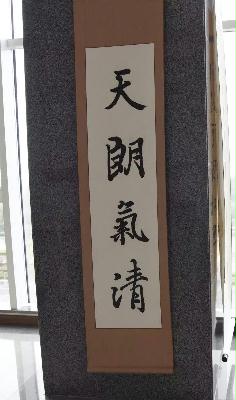 天朗氣清